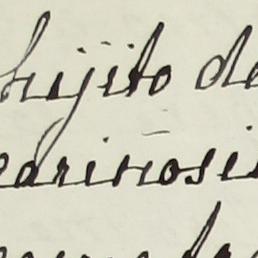 hijito de
cariñosi